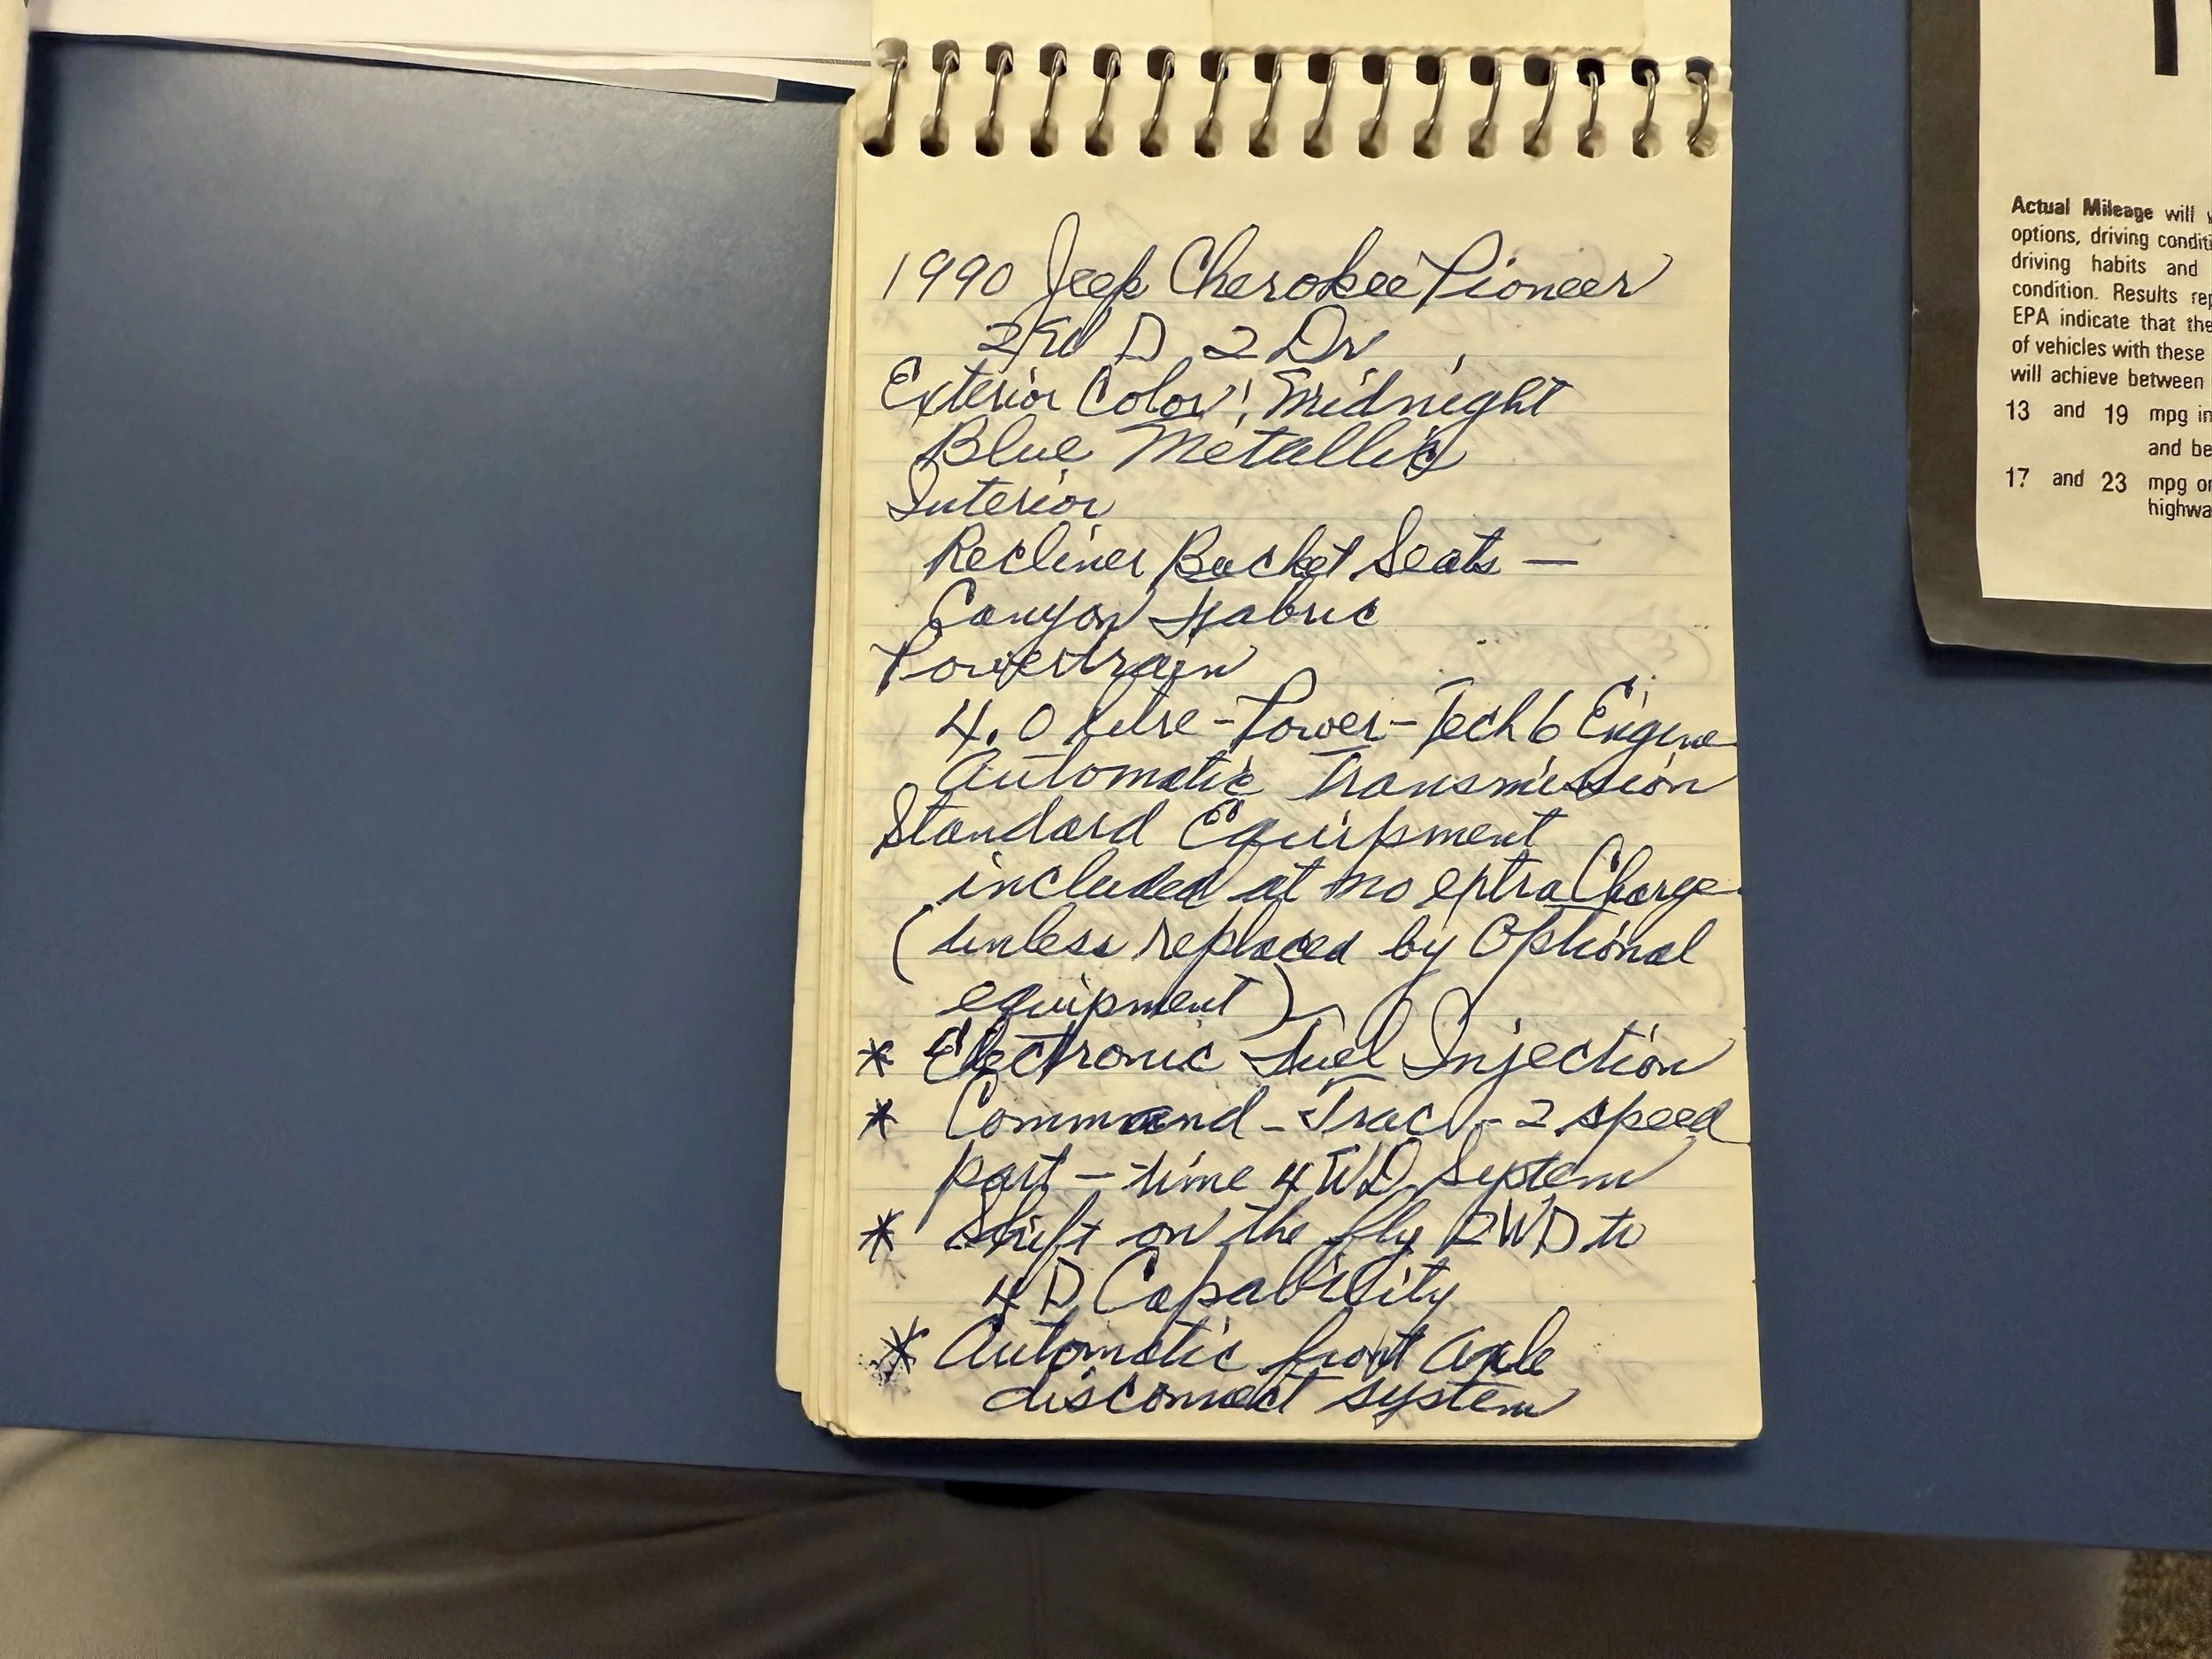 1990 Jeep Cherokee Pioneer
D 2 Dr
Exterior Color: Midnight
Blue Metallic
Interior
Recliner Bucket Seats —
Canyon Fabric
Powertrain
4.0 Litre - Power-Tech 6 Engine
Automatic Transmission
Standard Equipment
included at no extra Charge
(unless replaced by Optional
equipment)
* Electronic Fuel Injection
* Command-Trac - 2 speed
part-time 4WD System
* Shift on the fly 2WD to
4D Capability
* Automatic front axle
disconnect system
Actual Mileage will
options, driving
driving habits and
condition. Results
EPA indicate that the
of vehicles with these
will achieve between
13 and 19 mpg in
and
17 and 23 mpg